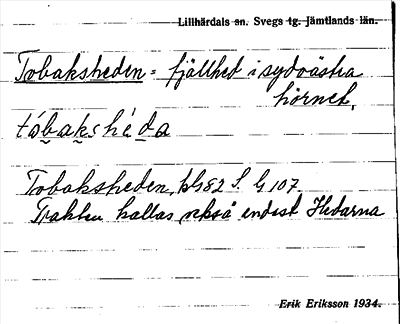 Lillhärdals sn. Svegs tg. Jämtlands län.
Tobaksheden = fjällhed i sydvästra
hörnet.
tóbakshéda
Tobaksheden, kbl 82 S. G 107.
Trakten kallas också endast Hedarna
Erik Eriksson 1934.